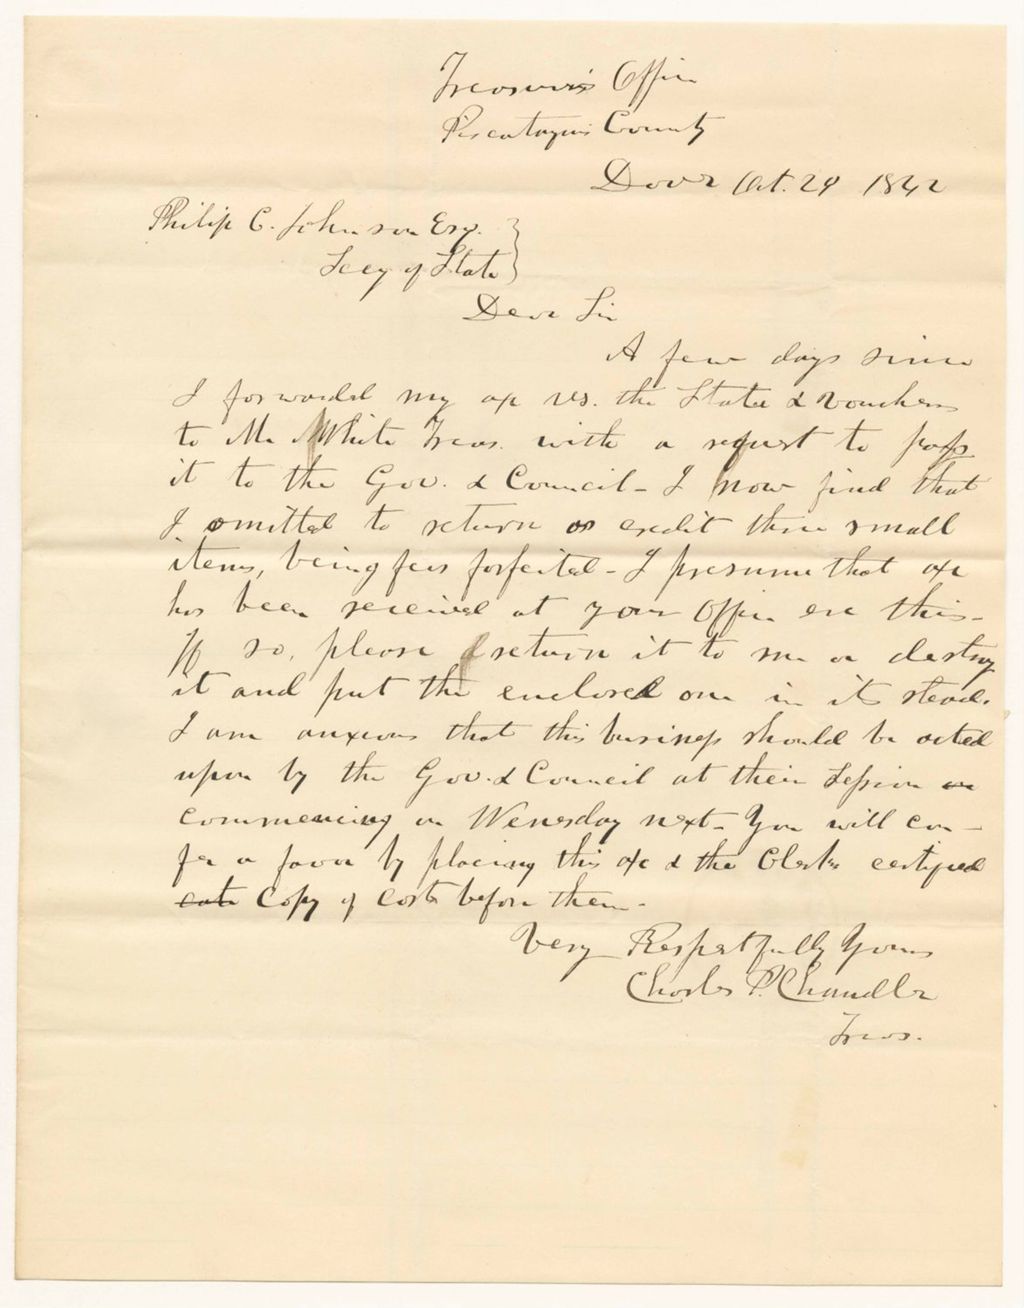 Treasurer's Office
Piscataquis County
Dover Oct. 29 1842
Philip C. Johnson Esq.
Secy of State
Dear Sir
A few days since
I forwarded my a/c vs. the State & vouchers
to Mr White Treas. with a request to pass
it to the Gov. & Council - I now find that
I omitted to return or credit three small
items, being fees forfeited - I presume that a/c
has been received at your Office ere this -
If so, please return it to me or destroy
it and put the enclosed one in its stead.
I am anxious that this business should be acted
upon by the Gov. & Council at their Session on
commencing on Wenesday next - You will con-
fer a favor by placing this a/c & the Clerks certified
copy of costs before them -
Very Respectfully Yours
Charles P. Chandler
Treas.